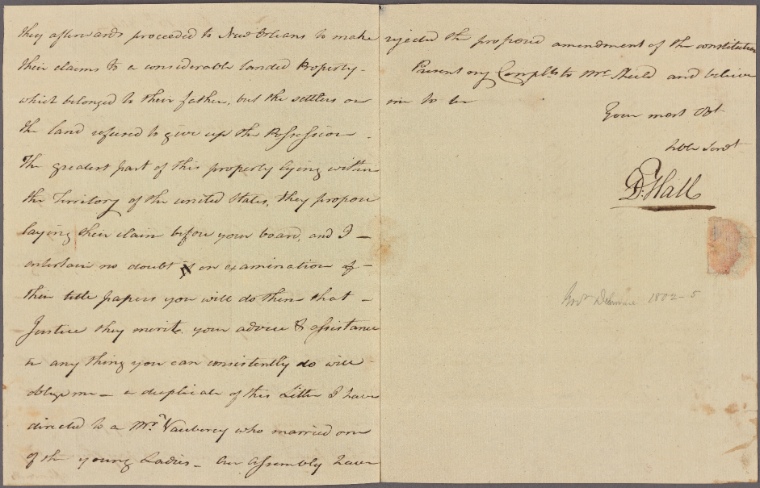 they afterwards proceeded to New Orleans to make
their claims to a considerable landed Property -
which belonged to their father, but the settlers on
the land refused to give up the Possession -
The greatest part of this property lying within
the Territory of the united States, they propose
laying their claim before your board, and I -
entertain no doubt on examination of -
their title papers you will do them that -
Justice they merit, your advice & assistance
or any thing you can consistently do will
oblige me - a duplicate of this Letter I have
directed to a Mr. who married one
of the young Ladies - Our Assembly have
rejected the proposed amendment of the constitution
Present my Complts to Mr. Shield and believe
me to be
Your most Obt
hble Servt
D. Hall
Govr Delaware 1802-5